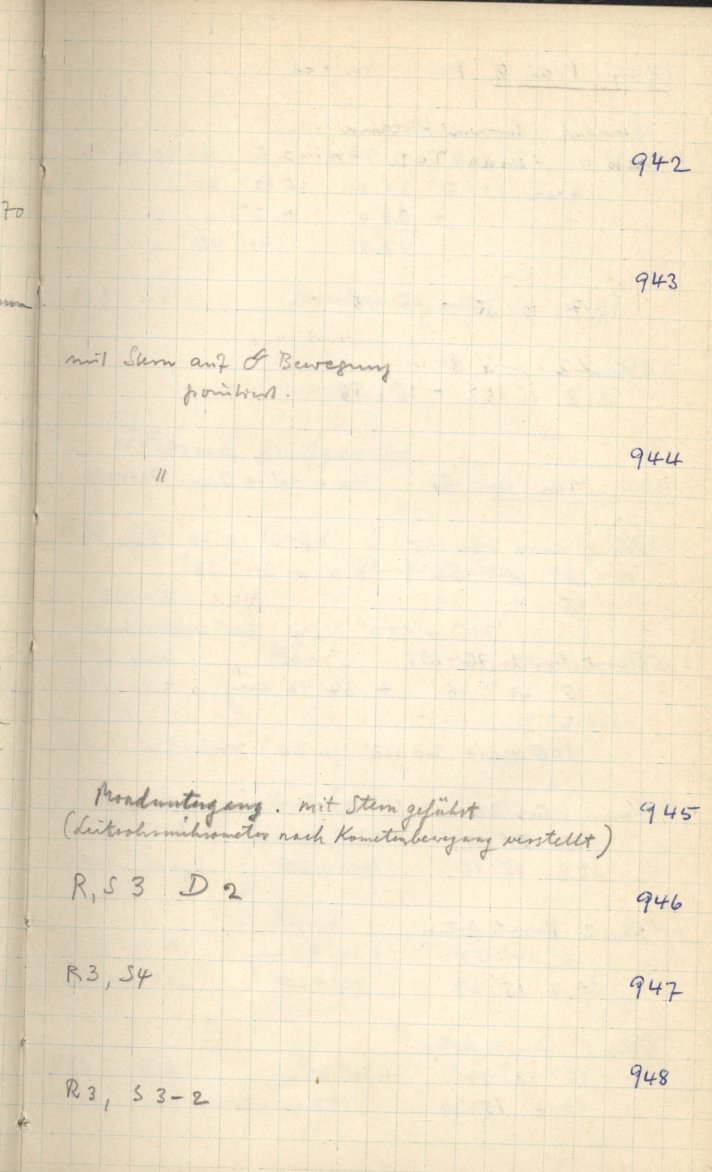 942
70
943
mit Stern auf ☄ Bewegung
pointiert.
944
"
Monduntergang. mit Stern geführt
945
(Leitrohrmikrometer nach Kometenbewegung verstellt)
R, S 3 D 2
946
R3, S4
947
948
R3, S 3-2